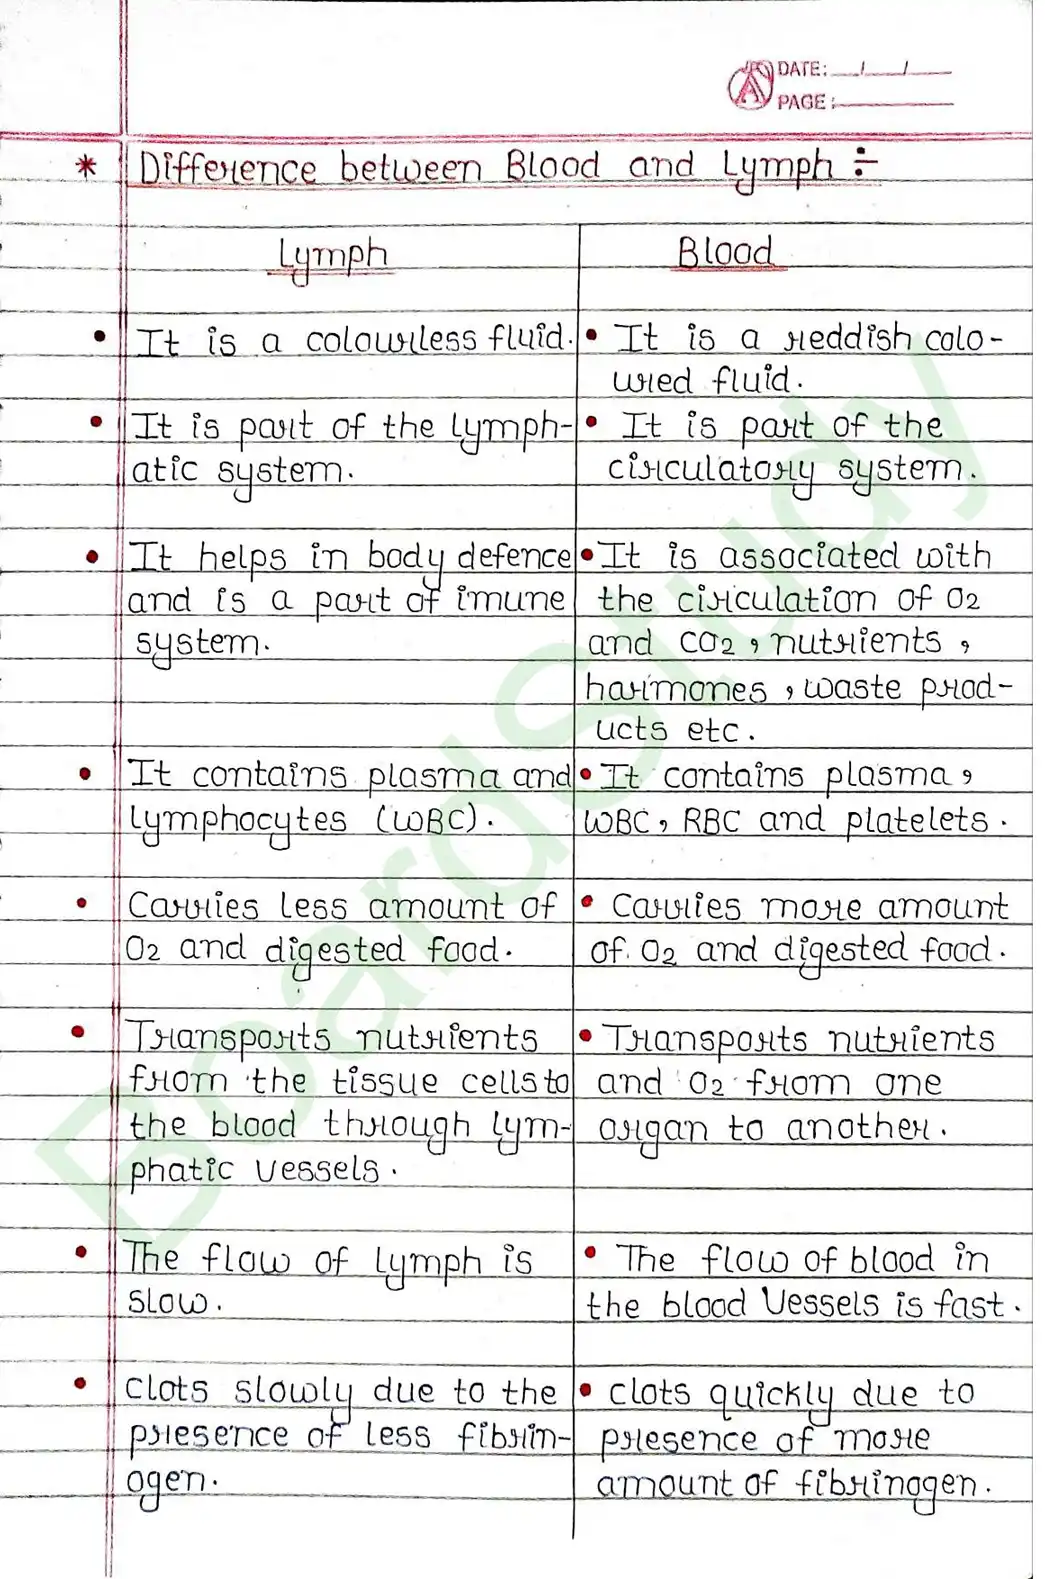 DATE: __/__/__
PAGE: ________
* Difference between Blood and Lymph ÷
Lymph
Blood
• It is a colourless fluid.
• It is a reddish colo-
ured fluid.
• It is part of the lymph-
atic system.
• It is part of the
circulatory system.
• It helps in body defence
and is a part of imune
system.
• It is associated with
the circulation of O2
and CO2, nutrients,
harmones, waste prod-
ucts etc.
• It contains plasma and
lymphocytes (WBC).
• It contains plasma,
WBC, RBC and platelets.
• Carries less amount of
O2 and digested food.
• Carries more amount
of O2 and digested food.
• Transports nutrients
from the tissue cells to
the blood through lym-
phatic vessels.
• Transports nutrients
and O2 from one
organ to another.
• The flow of lymph is
slow.
• The flow of blood in
the blood Vessels is fast.
• Clots slowly due to the
presence of less fibrin-
ogen.
• Clots quickly due to
presence of more
amount of fibrinogen.
BoardStudy